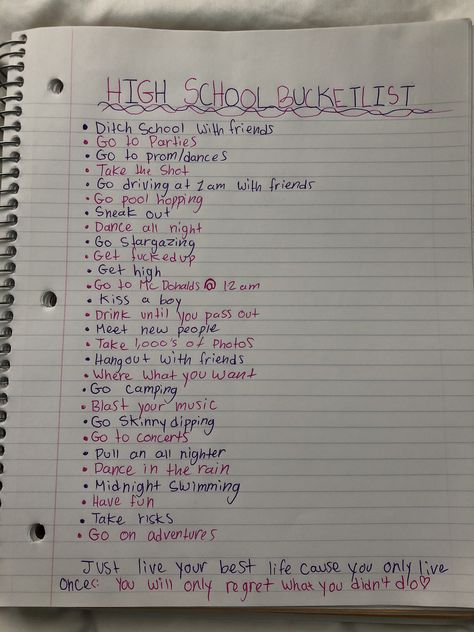 HIGH SCHOOL BUCKETLIST
• Ditch School with friends
• Go to Parties
• Go to prom/dances
• Take the shot
• Go driving at 1am with friends
• Go pool hopping
• Sneak out
• Dance all night
• Go Stargazing
• Get fucked up
• Get high
• Go to McDonalds @ 12am
• Kiss a boy
• Drink until you pass out
• Meet new people
• Take 1,000's of Photos
• Hangout with friends
• Where what you want
• Go camping
• Blast your music
• Go Skinny dipping
• Go to concerts
• Pull an all nighter
• Dance in the rain
• Midnight Swimming
• Have fun
• Take risks
• Go on adventures
Just live your best life cause you only live
once(: You will only regret what you didn't do♡